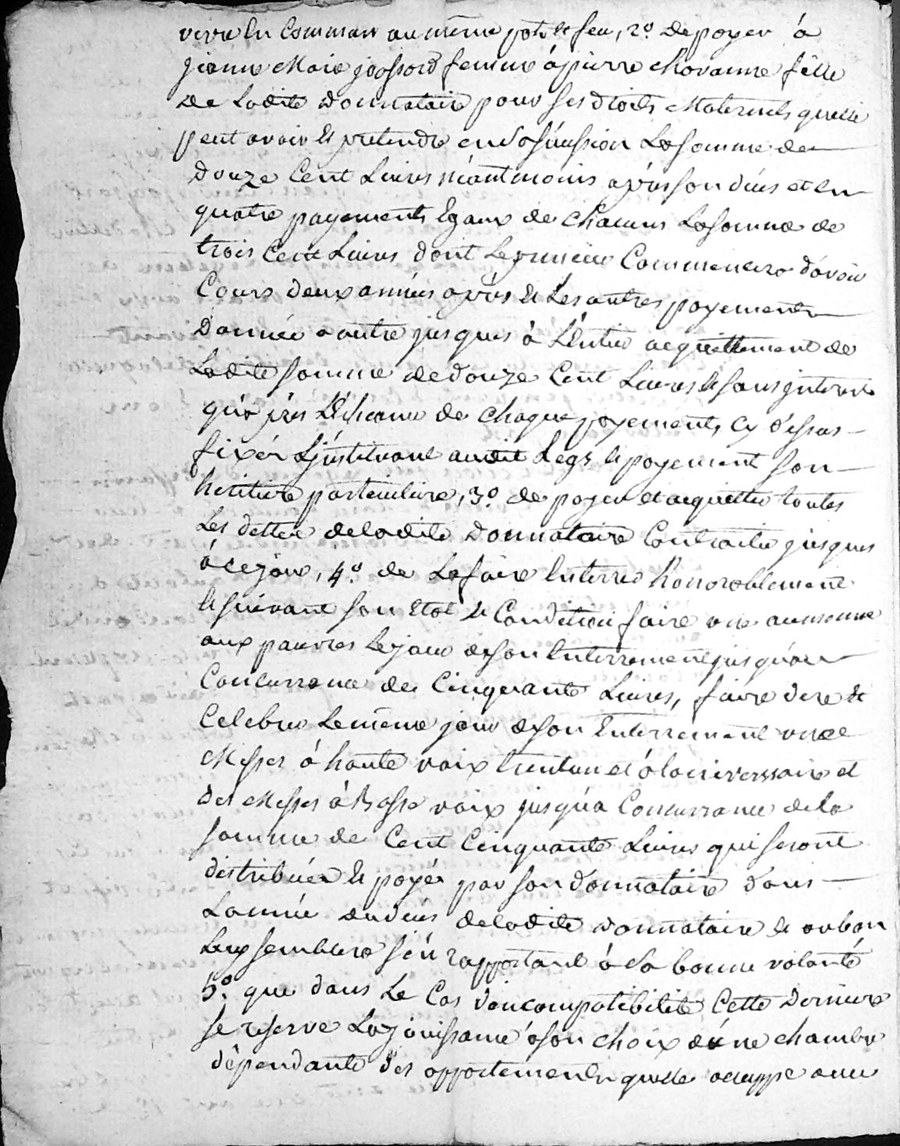 vivre En Commun au même pot & feu, 2º. de payer à
jeanne Marie femme à pierre fille
De Ladite Donnataire pour ses droits Maternels quelle
peut avoir & pretendre en sa sucession La somme de
douze Cent Livres néantmoins après son deces et en
quatre payements Egaux de chacuns La somme de
trois Cent Livres dont Le premier Commencera d'avoir
Cours deux années après & Les autres payements
D'année a autre jusques à L'Entier acquittement de
Ladite somme de douze Cent Livres & sans interest
qu'après L'Echeance de chaque payements cy dessus
fixér L'jnstituant audit Legs & payement son
heritiere particuliere, 3º. de payer et acquitter toutes
Les dettes de ladite Donnataire Contractés jusques
à ce jour, 4º. de La faire Enterrer honnorablement
& suivant son Etat & Condition faire une aumonne
aux pauvres Le jour de son Enterrement jusqu'au
Concurrance de Cinquante Livres, faire dire &
Celebrer Le même jour de son Enterrement
Messes à haute voix trentain et à laniverssaire et
des Messes à Basse voix jusqu'a Concurrance de la
somme de Cent Cinquante Livres qui seront
distribuées & payés par son donnataire dans
L'année du deces de ladite Donnataire & ou bon
Leur semblera s'en rapportant à Sa bonne volonté
5º. que dans Le Cas d'incompatibilité Cette Derniere
se reserve La jouissance à son choix d'une chambre
dépendante des appartements quelle occuppe avec